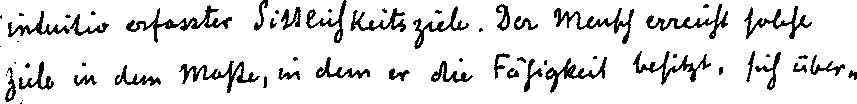 intuitiv erfasster Sittlichkeitsziele. Der Mensch erreicht solche
Ziele in dem Maße, in dem er die Fähigkeit besitzt, sich über„